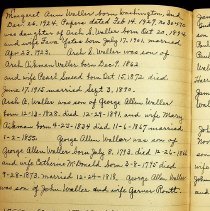 Margaret Ann Waller born Washington, Ind.
Dec. 26, 1924. Papers dated Feb. 14, 1927, No
was daughter of Arch S. Waller born Oct. 20, 1894
and wife born July 1901 married
Apr. 23, 1923. Arch S. Waller was son of
Arch Aikman Waller born Dec. 7, 1862
and wife Pearl Snead born Oct. 15, 1872 died
June 17, 1915 married Sept. 3, 1890.
Arch A. Waller was son of George Allen Waller
born 12-13-1828, died 12-29-1891, and wife Mary
Aikman born 4-23-1834 died 11-6-1867 married
1-2-1855. George Allen Waller was son of
George Allen Waller born July 8, 1793, died 2-26-1866
and wife Catherine McDonald born 3-8-1795 died
9-28-1873, married 12-24-1818. George Allen Waller
was son of John Waller and wife